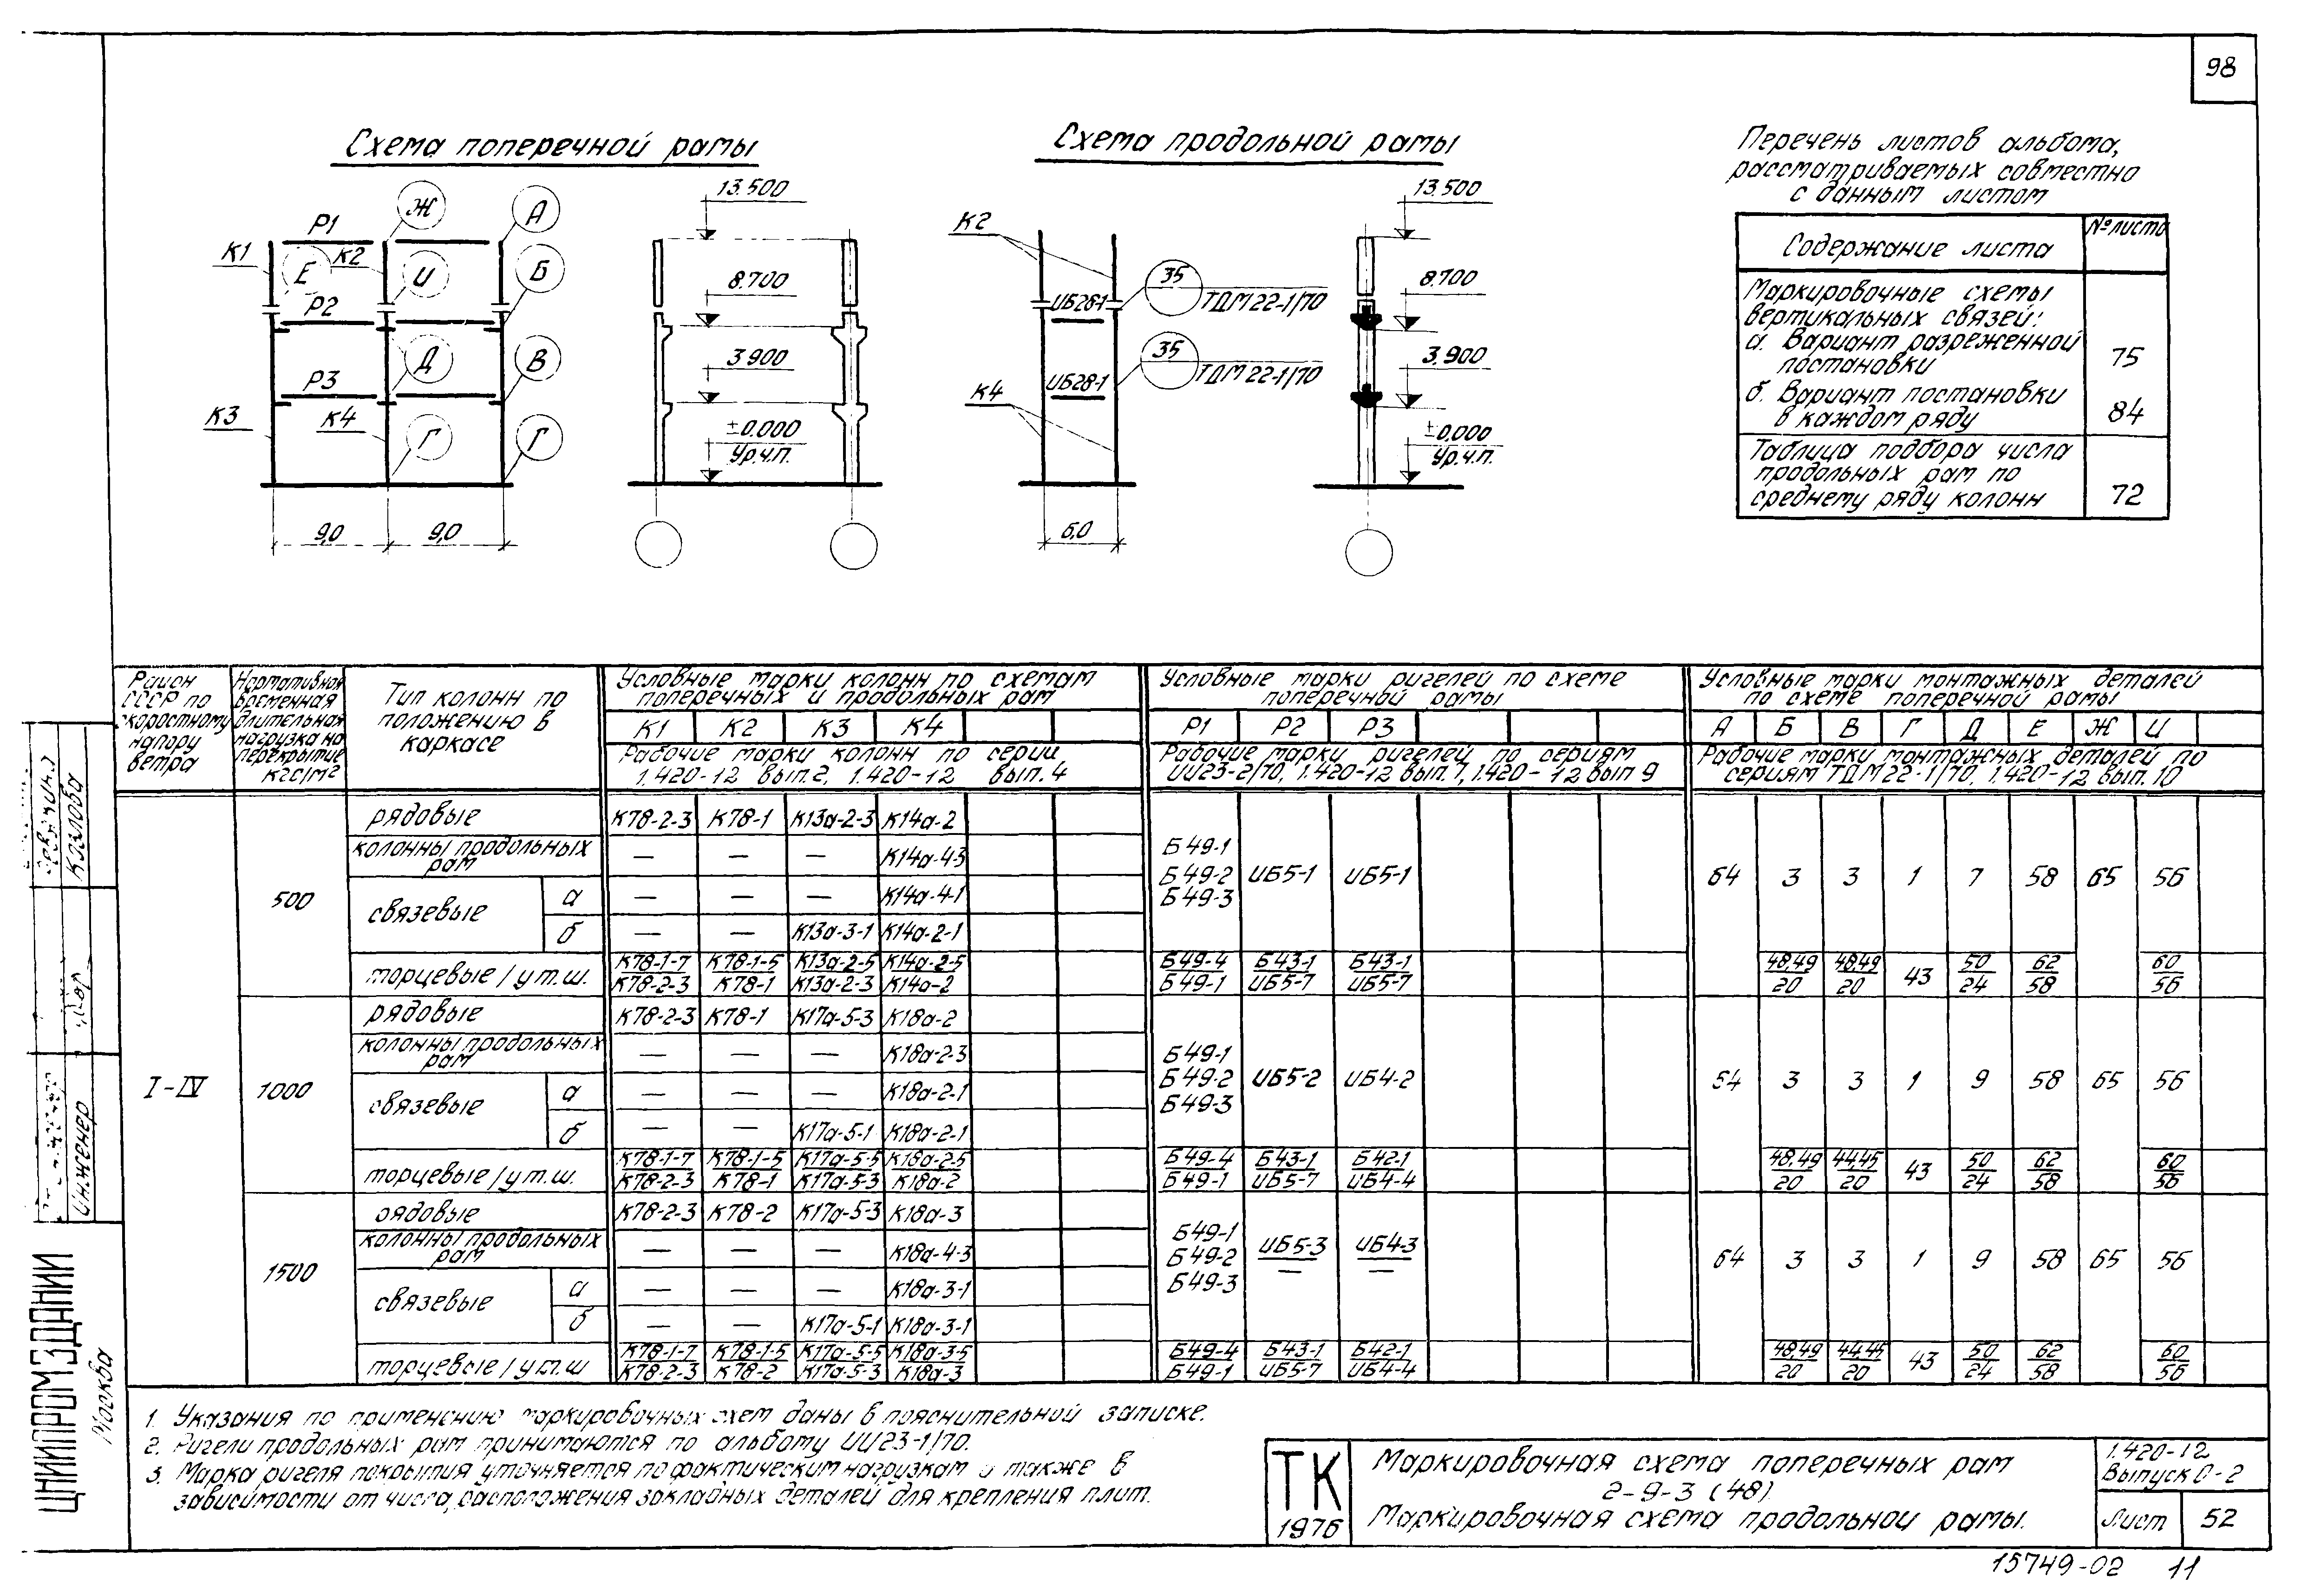 98
Схема поперечной рамы
Схема продольной рамы
Перечень листов альбома,
рассматриваемых совместно
с данным листом
Содержание листа
№ листа
Маркировочные схемы
вертикальных связей:
а. Вариант разреженной
постановки
75
б. Вариант постановки
в каждом ряду
84
Таблица подбора числа
продольных рам по
среднему ряду колонн
72
Р1 Ж А
К1 Е К2 И Б
Р2
Д В
Р3
К3 К4 Г Г
9,0 9,0
13.500
8.700
3.900
±0.000
Ур.ч.п.
К2
ИБ28-1
35
ТДМ 22-1/70
ИБ28-1
35
ТДМ 22-1/70
К4
6,0
13.500
8.700
3.900
±0.000
Ур.ч.п.
Район
СССР по
скоростному
напору
ветра
Нормативная
временная
длительная
нагрузка на
перекрытие
кгс/м2
Тип колонн по
положению в
каркасе
Условные марки колонн по схемам
поперечных и продольных рам
К1 К2 К3 К4
Рабочие марки колонн по серии
1.420-12 вып.2, 1.420-12 вып.4
Условные марки ригелей по схеме
поперечной рамы
Р1 Р2 Р3
Рабочие марки ригелей по сериям
ИИ23-2/70, 1.420-12 вып.7, 1.420-12 вып 9
Условные марки монтажных деталей
по схеме поперечной рамы
А Б В Г Д Е Ж И
Рабочие марки монтажных деталей по
сериям ТДМ 22-1/70, 1.420-12 вып. 10
I-IV
500
рядовые К78-2-3 К78-1 К13а-2-3 К14а-2
колонны продольных
рам
— — — К14а-4-3
связевые
а — — — К14а-4-1
б — — К13а-3-1 К14а-2-1
Б49-1
Б49-2 ИБ5-1 ИБ5-1
Б49-3
64 3 3 1 7 58 65 56
торцевые / у т.ш.
К78-1-7 К78-1-5 К13а-2-5 К14а-2-5 Б49-4 Б43-1 Б43-1 48,49 48,49 43 50 62 60
К78-2-3 К78-1 К13а-2-3 К14а-2 Б49-1 ИБ5-7 ИБ5-7 20 20 24 58 56
1000
рядовые К78-2-3 К78-1 К17а-5-3 К18а-2
колонны продольных
рам
— — — К18а-2-3
связевые
а — — — К18а-2-1
б — — К17а-5-1 К18а-2-1
Б49-1
Б49-2 ИБ5-2 ИБ4-2
Б49-3
64 3 3 1 9 58 65 56
торцевые / у т.ш.
К78-1-7 К78-1-5 К17а-5-5 К18а-2-5 Б49-4 Б43-1 Б42-1 48,49 44,45 43 50 62 60
К78-2-3 К78-1 К17а-5-3 К18а-2 Б49-1 ИБ5-7 ИБ4-4 20 20 24 58 56
1500
рядовые К78-2-3 К78-2 К17а-5-3 К18а-3
колонны продольных
рам
— — — К18а-4-3
связевые
а — — — К18а-3-1
б — — К17а-5-1 К18а-3-1
Б49-1
Б49-2 ИБ5-3 ИБ4-3
— —
Б49-3
64 3 3 1 9 58 65 56
торцевые / у т.ш
К78-1-7 К78-1-5 К17а-5-5 К18а-3-5 Б49-4 Б43-1 Б42-1 48,49 44,45 43 50 62 60
К78-2-3 К78-2 К17а-5-3 К18а-3 Б49-1 ИБ5-7 ИБ4-4 20 20 24 58 56
1. Указания по применению маркировочных схем даны в пояснительной записке.
2. Ригели продольных рам принимаются по альбому ИИ23-1/70.
3. Марка ригеля покрытия уточняется по фактическим нагрузкам а также в
зависимости от числа, расположения закладных деталей для крепления плит.
ТК
1976
Маркировочная схема поперечных рам
2-9-3 (48)
Маркировочная схема продольной рамы.
1.420-12
Выпуск 0-2
Лист 52
15749-02 11
Козлова
Инженер
ЦНИИПРОМЗДАНИЙ
Москва